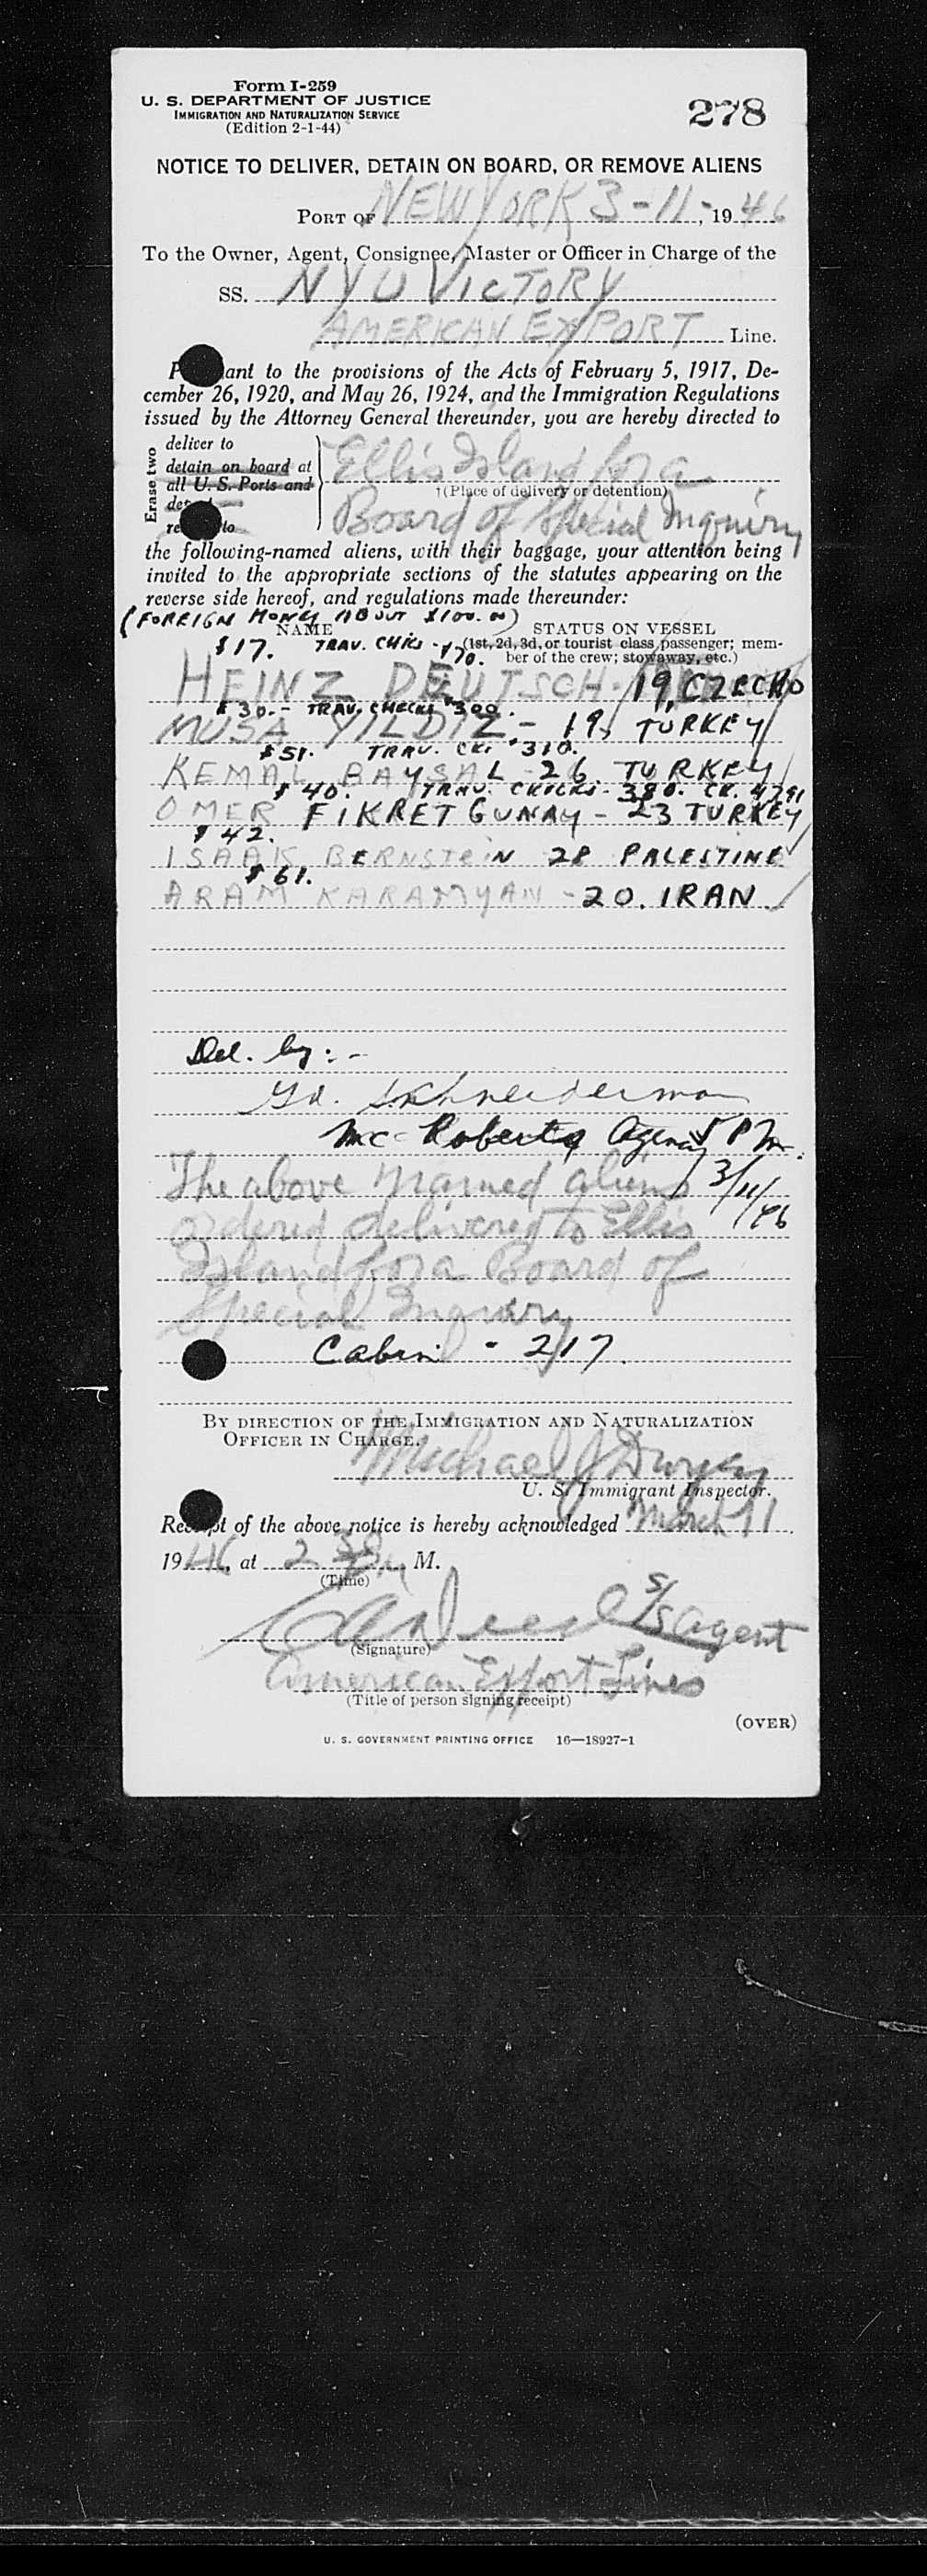 Form I-259
U. S. DEPARTMENT OF JUSTICE
IMMIGRATION AND NATURALIZATION SERVICE
(Edition 2-1-44)
278
NOTICE TO DELIVER, DETAIN ON BOARD, OR REMOVE ALIENS
PORT OF NEW YORK 3-11-, 1946
To the Owner, Agent, Consignee, Master or Officer in Charge of the
SS. NYU VICTORY
AMERICAN EXPORT Line.
P ant to the provisions of the Acts of February 5, 1917, De-
cember 26, 1920, and May 26, 1924, and the Immigration Regulations
issued by the Attorney General thereunder, you are hereby directed to
Erase two
deliver to
detain on board at
all U. S. Ports and
det
re to
Ellis Island for a
†(Place of delivery or detention)
Board of Special Inquiry
the following-named aliens, with their baggage, your attention being
invited to the appropriate sections of the statutes appearing on the
reverse side hereof, and regulations made thereunder:
(FOREIGN MONEY ABOUT $100.00)
NAME STATUS ON VESSEL
$17. TRAV. CHKS - $70. (1st, 2d, 3d, or tourist class passenger; mem-
ber of the crew; stowaway, etc.)
HEINZ DEUTSCH - 19, CZECHO
$30.- TRAV. CHECKS $300.
MUSA YILDIZ - 19, TURKEY
$51. TRAV. CK. $310.
KEMAL BAYSAL - 26. TURKEY
$40. TRAV. CHECKS - 380. CK. 4791
OMER FIKRET GUNAY - 23 TURKEY
$42.
ISAAK BERNSTEIN 28 PALESTINE
$61.
ARAM KARAMYAN - 20. IRAN
Del. by: -
Gd. Schneiderman
Mc Roberts Agency 5 PM.
The above named aliens 3/11/46
ordered delivered to Ellis
Island for a Board of
Special Inquiry
Cabin - 217.
BY DIRECTION OF THE IMMIGRATION AND NATURALIZATION
OFFICER IN CHARGE.
Michael J Dwyer
U. S. Immigrant Inspector.
Rec pt of the above notice is hereby acknowledged March 11,
1946, at 2 30 P M.
(Time)
S/S Agent
(Signature)
American Export Lines
(Title of person signing receipt)
(OVER)
U. S. GOVERNMENT PRINTING OFFICE 16—18927-1